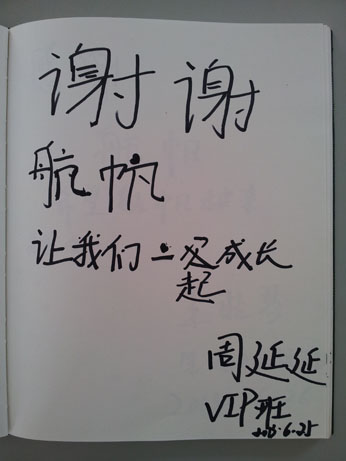 谢谢
航帆
让我们一起成长
周延延
VIP班